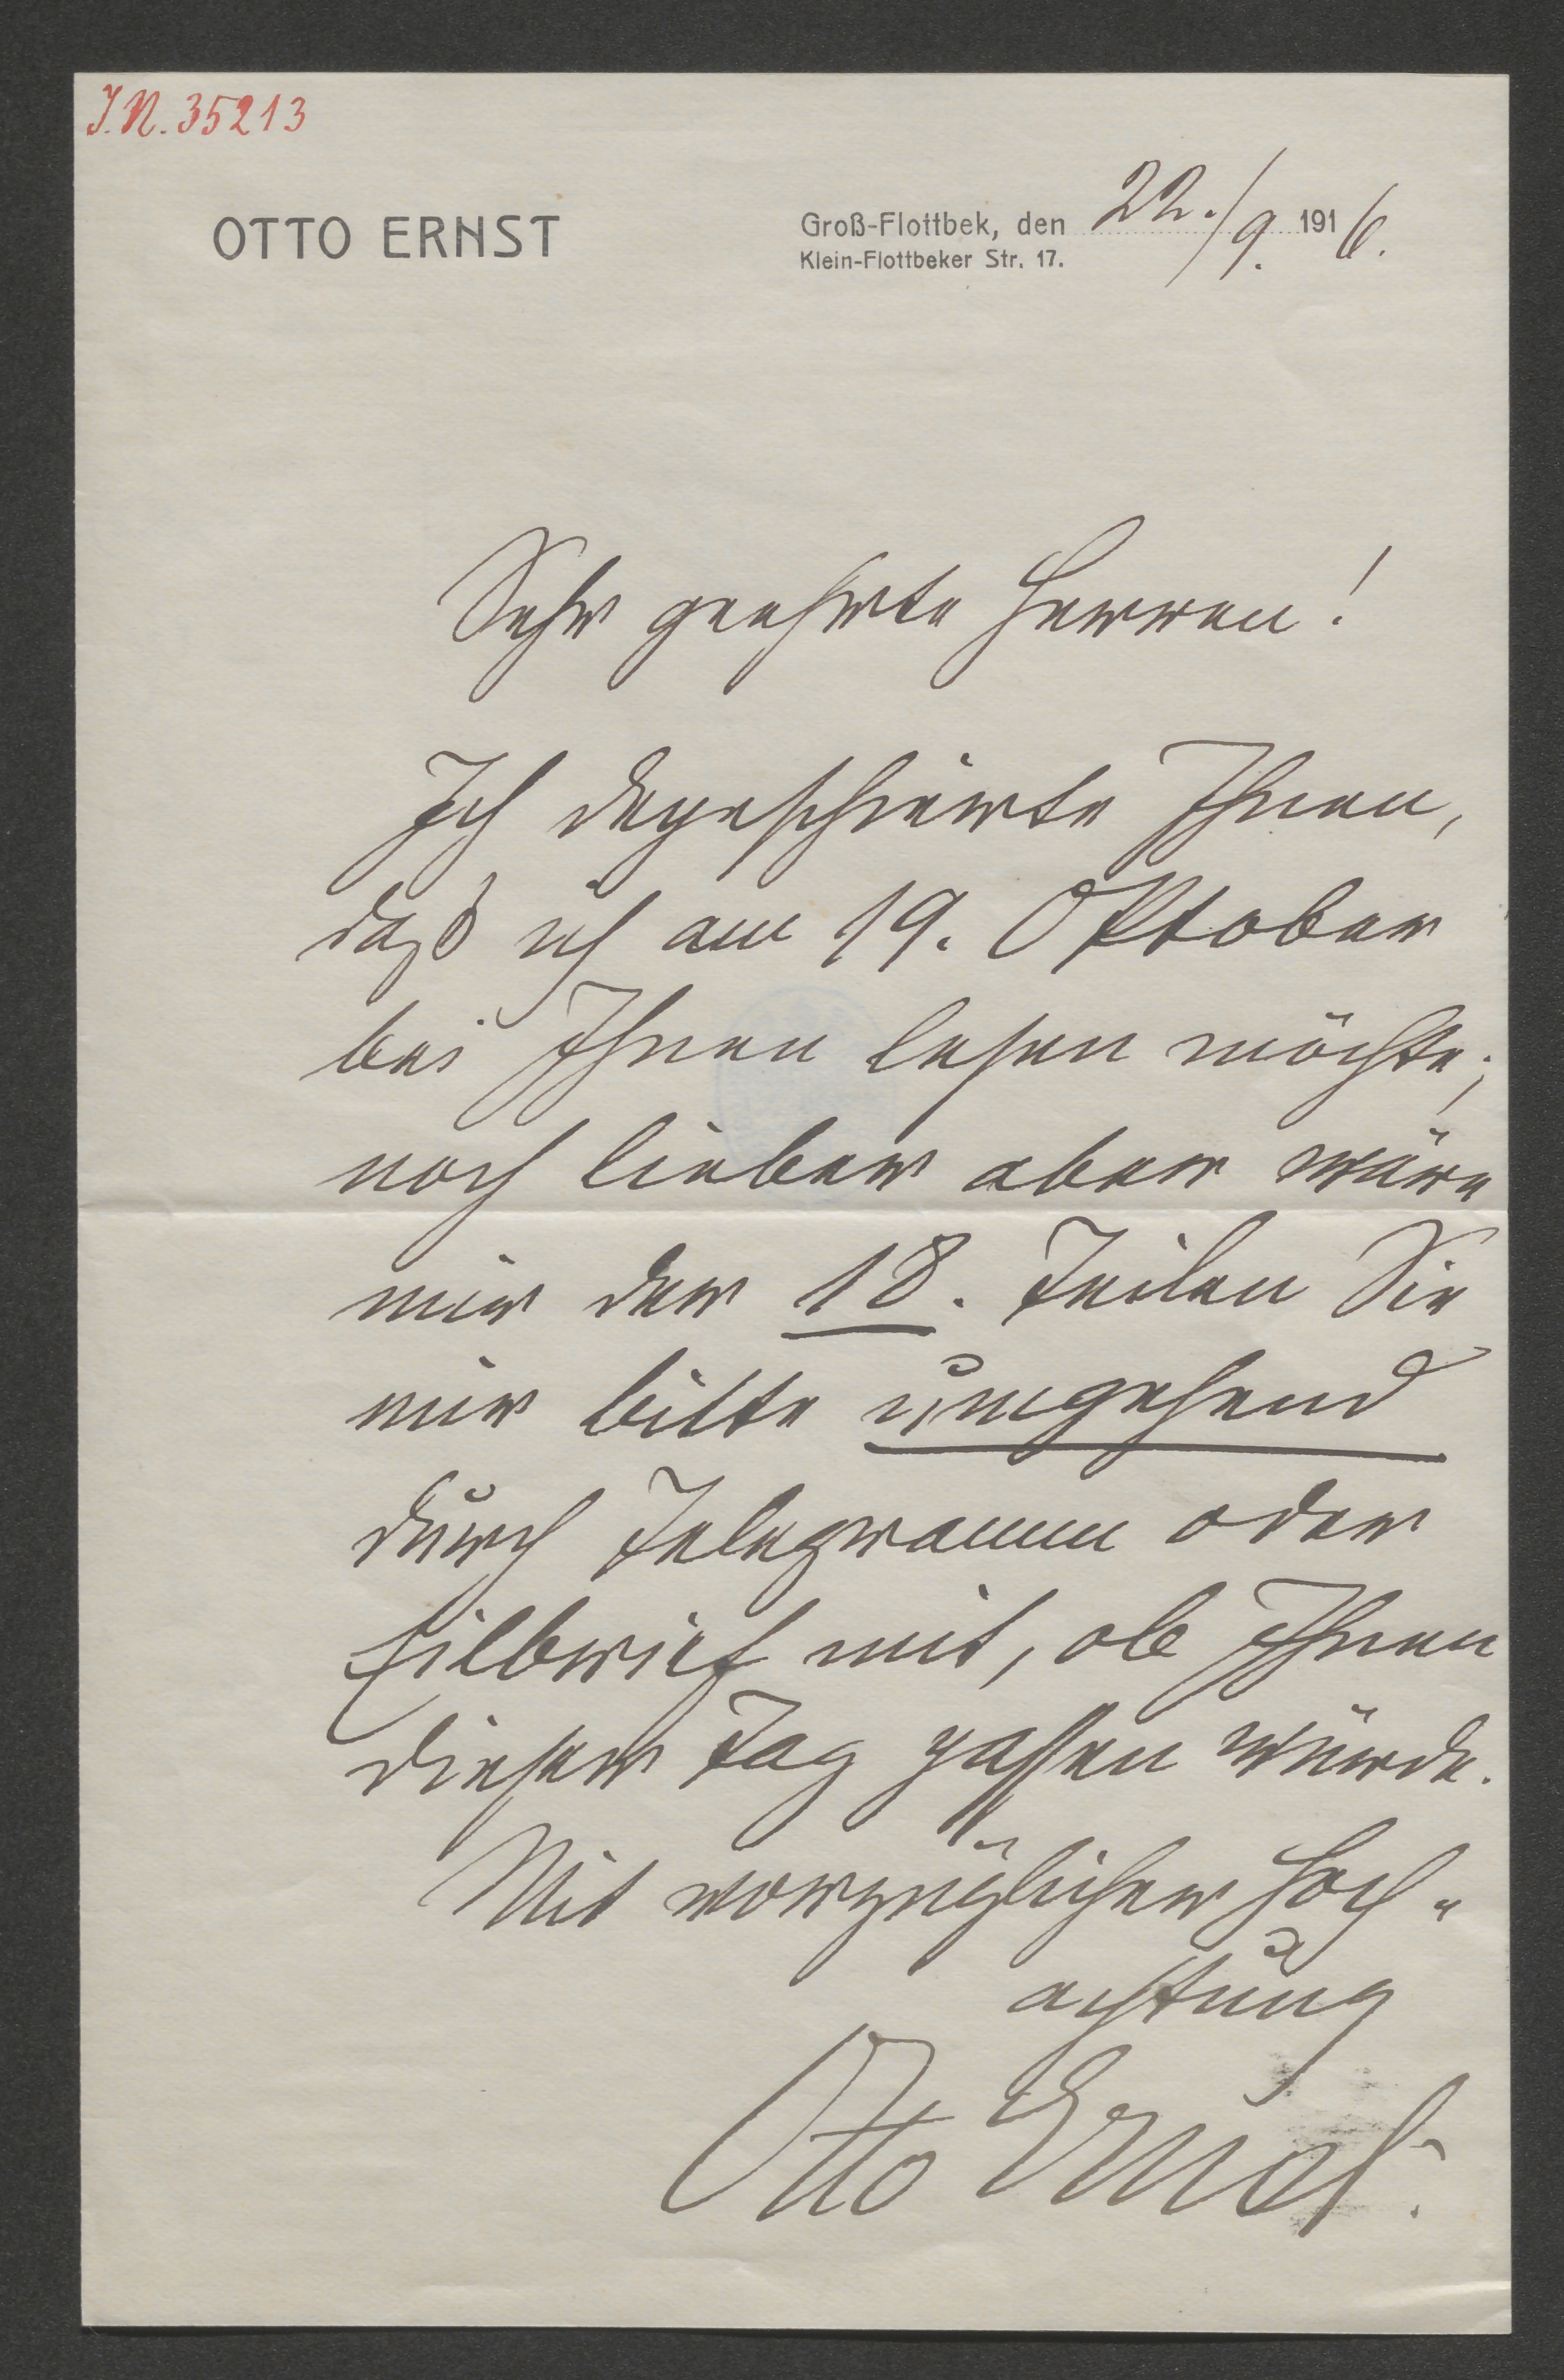 J.N. 35213
OTTO ERNST
Groß-Flottbek, den 22./9. 1916.
Klein-Flottbeker Str. 17.
Sehr geehrte Herren!
Ich depeschierte Ihnen,
daß ich am 19. Oktober
bei Ihnen lesen möchte;
noch lieber aber wäre
mir der 18. Teilen Sie
mir bitte umgehend
durch Telegramm oder
Eilbrief mit, ob Ihnen
dieser Tag passen würde.
Mit vorzüglicher Hoch-
achtung
Otto Ernst.